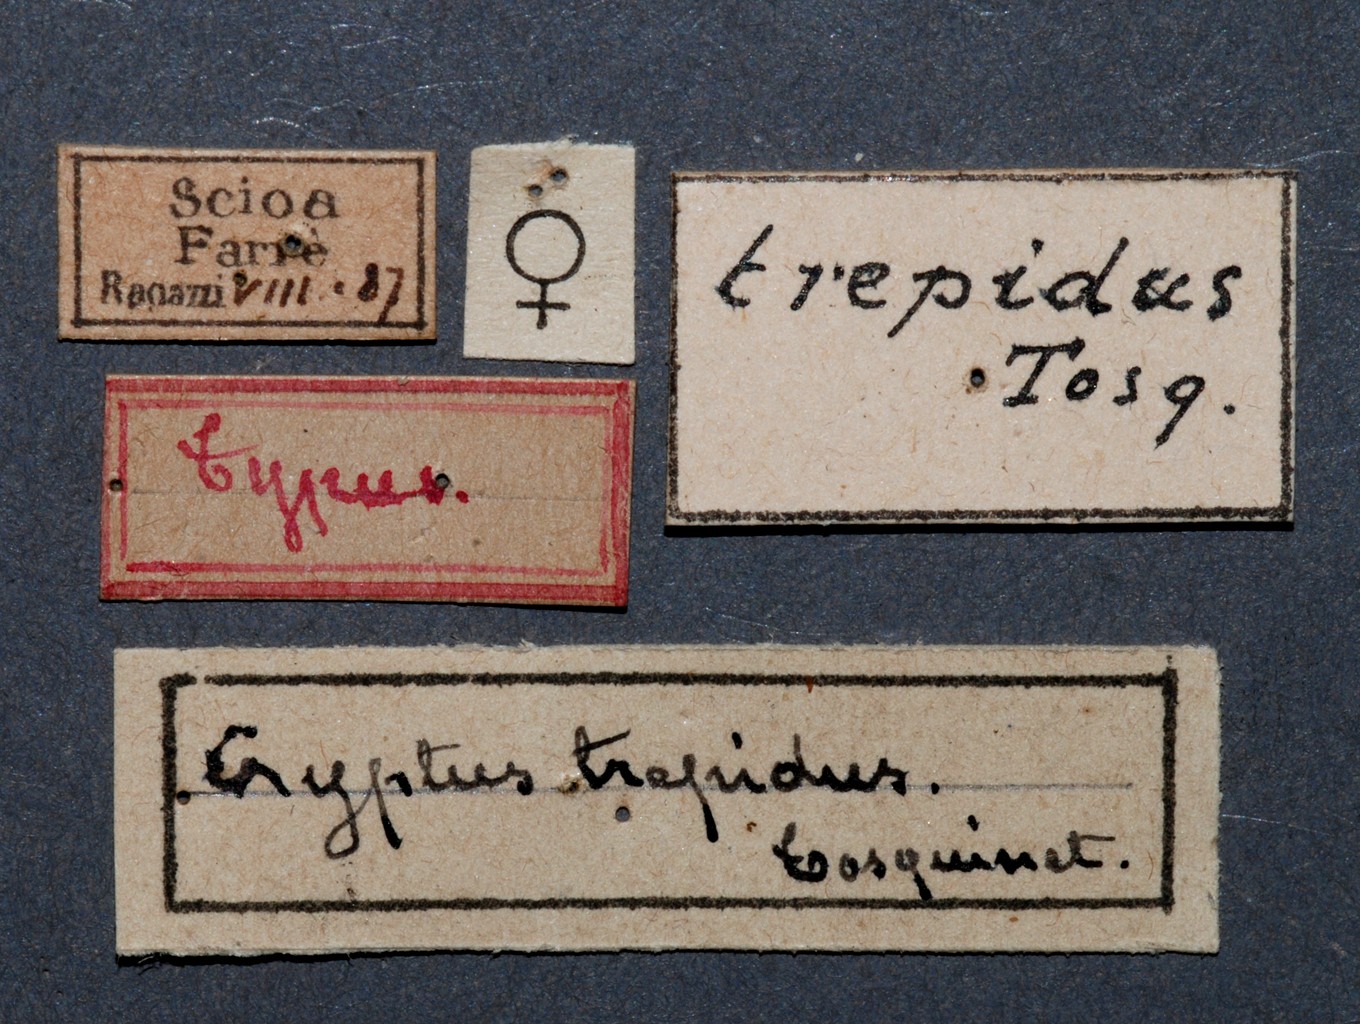 Scioa
Farrè
Ragazzi VIII. 87
♀
trepidus
Tosq.
Typus.
Cryptus trepidus.
Tosquinet.